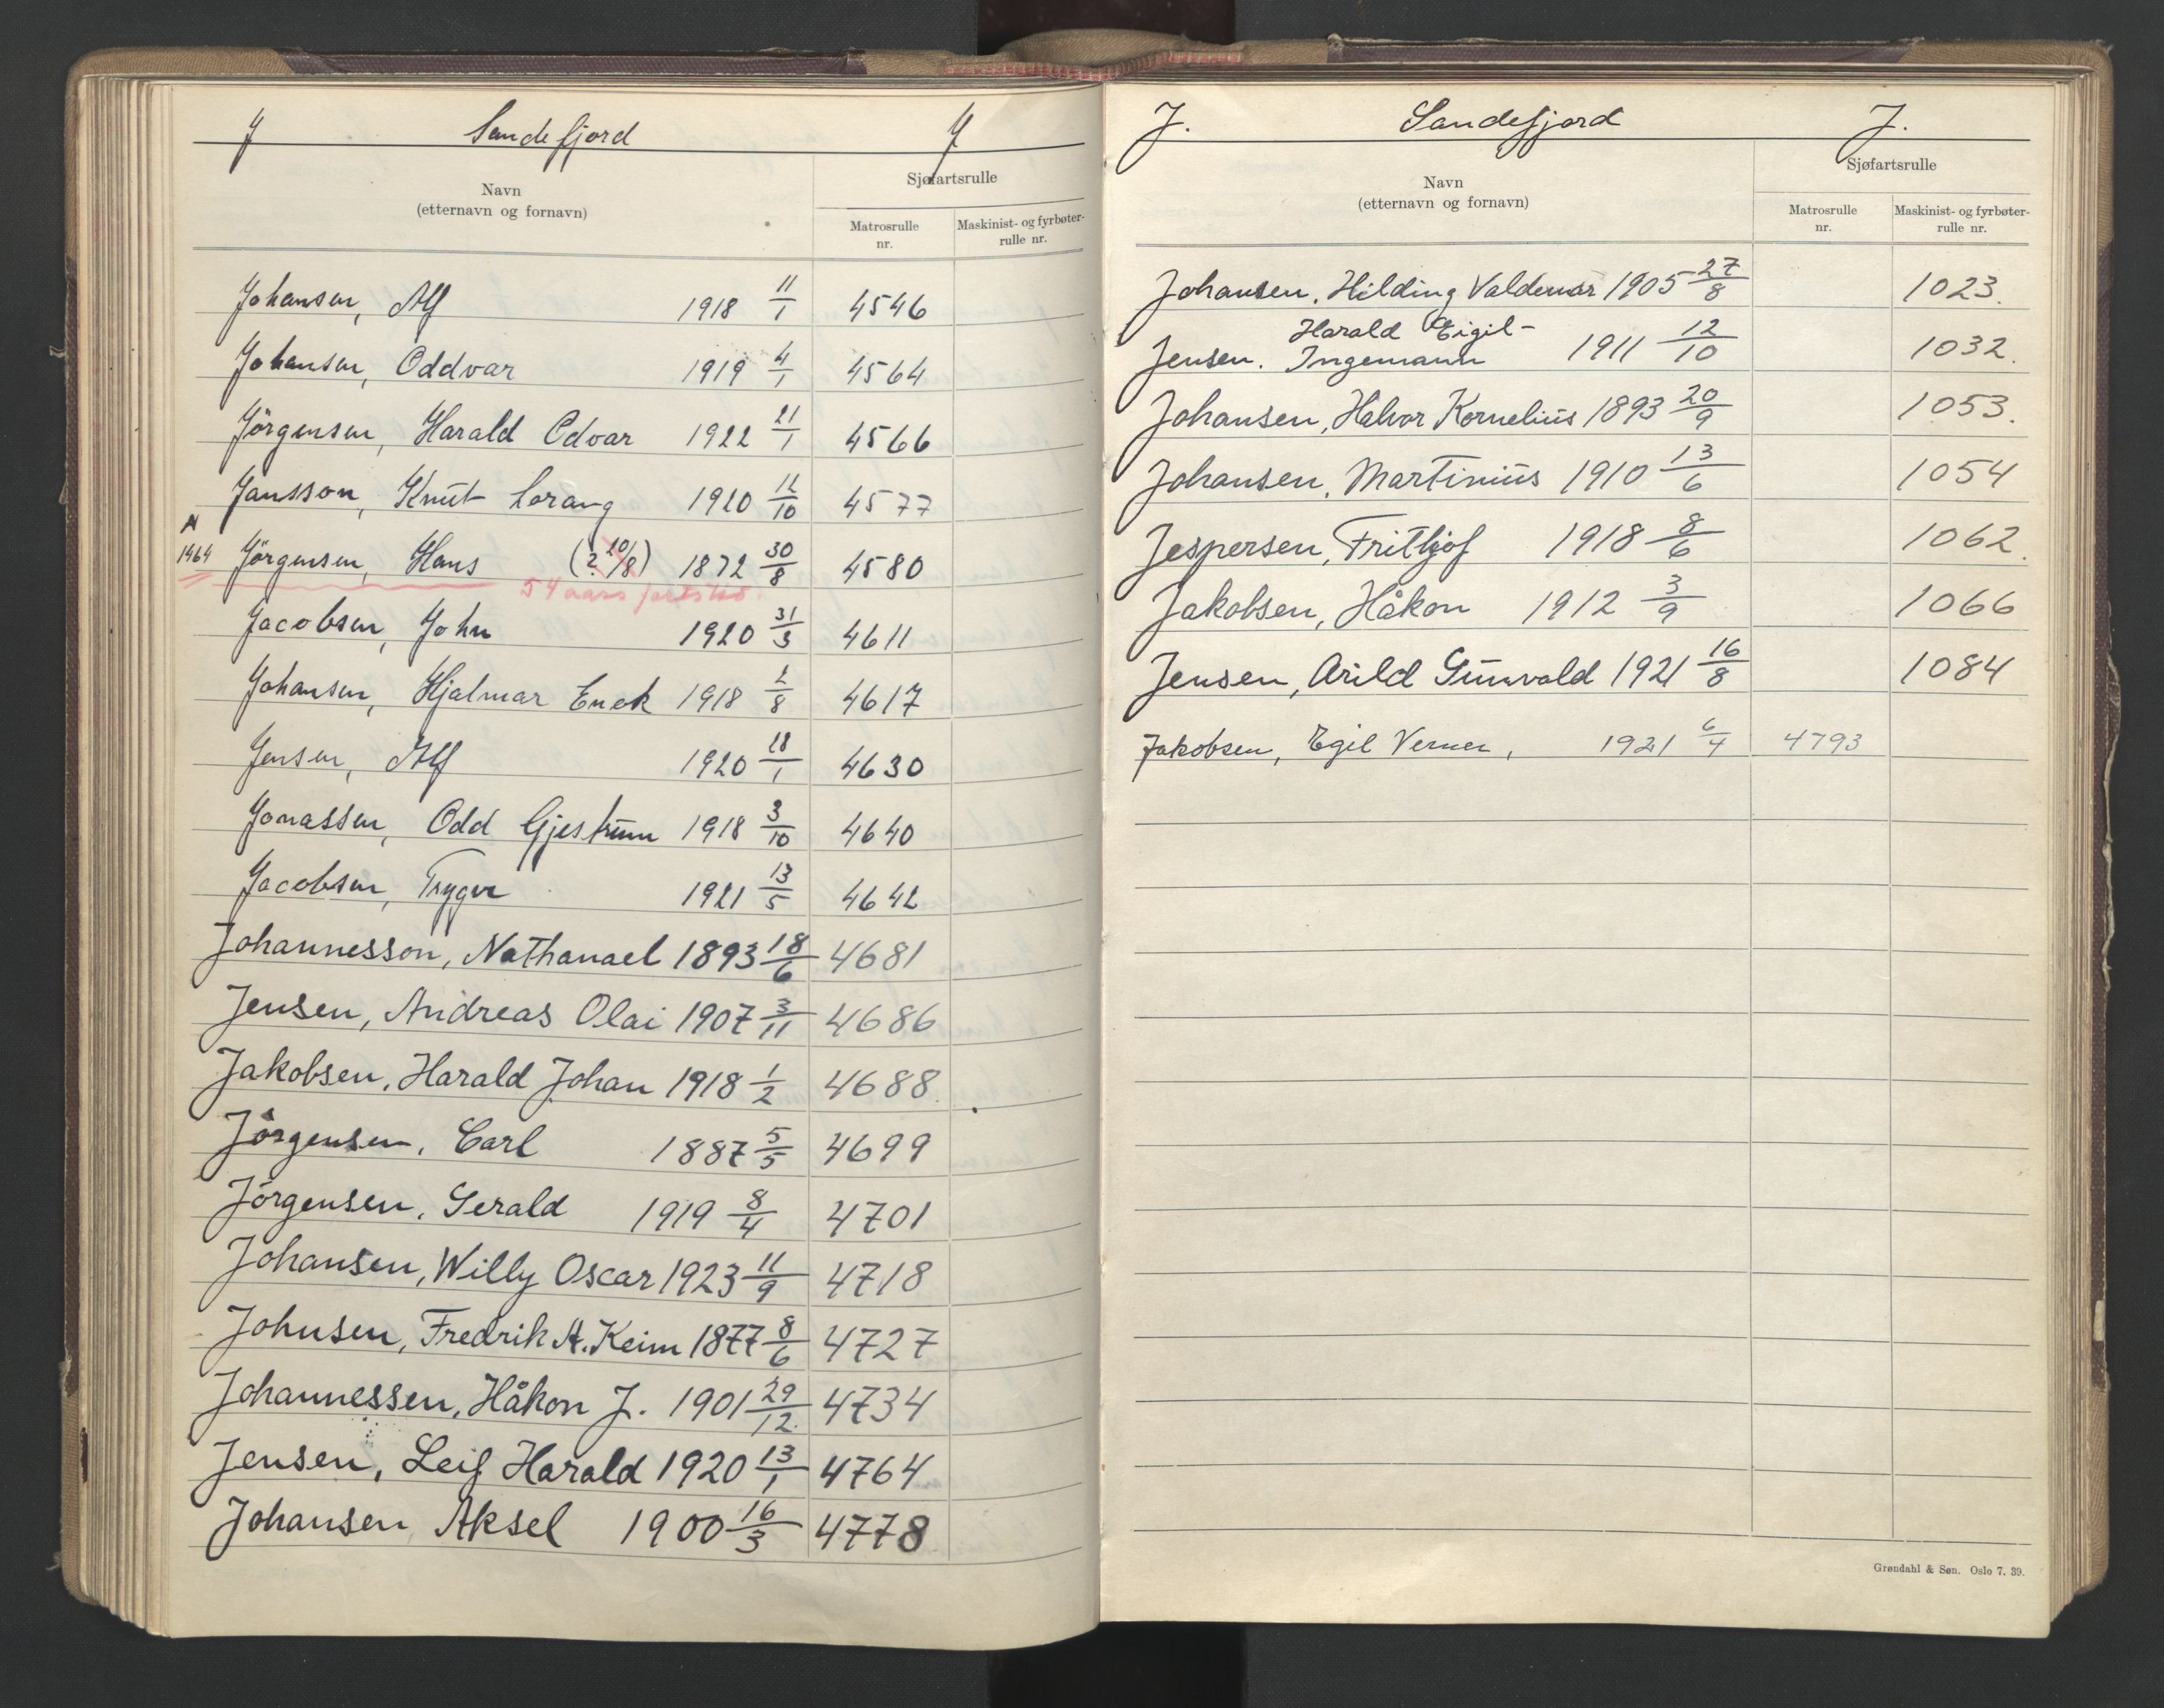 J Sandefjord J
Sjøfartsrulle
Navn
(etternavn og fornavn)
Matrosrulle nr.
Maskinist- og fyrbøter-rulle nr.
Johansen, Alf 1918 11/1 4546
Johansen, Oddvar 1919 4/1 4564
Jörgensen, Harald Odvar 1922 21/1 4566
Jansson, Knut Lorang 1920 12/10 4577
1464 Jörgensen, Hans (? 20/8) 1872 30/8 4580
54 aars
Jacobsen, John 1920 31/3 4611
Johansen, Hjalmar Enok 1918 2/8 4617
Jensen, Alf 1920 28/1 4630
Jonassen, Odd Gjestrum 1918 3/10 4640
Jacobsen, Trygve 1921 13/5 4642
Johannesson, Nathanael 1893 18/6 4681
Jensen, Andreas Olai 1907 3/11 4686
Jakobsen, Harald Johan 1918 1/2 4688
Jörgensen, Carl 1887 5/5 4699
Jörgensen, Gerald 1919 8/4 4701
Johansen, Willy Oscar 1923 11/9 4718
Johnsen, Fredrik A. Keim 1877 8/6 4727
Johannessen, Håkon J. 1901 29/12 4734
Jensen, Leif Harald 1920 13/1 4764
Johansen, Aksel 1900 16/3 4778
J. Sandefjord J.
Sjøfartsrulle
Navn
(etternavn og fornavn)
Matrosrulle nr.
Maskinist- og fyrbøter-rulle nr.
Johansen, Hilding Valdemar 1905 27/8 1023.
Harald Eigil-
Jensen. Ingemann 1911 12/10 1032.
Johansen, Halvor Kornelius 1893 20/9 1053.
Johansen, Martinius 1910 13/6 1054
Jespersen, Frithjof 1918 8/6 1062.
Jakobsen, Håkon 1912 3/9 1066
Jensen, Arild Gunvald 1921 16/8 1084
Jakobsen, Egil Verner, 1921 6/4 4793
Grøndahl & Søn. Oslo 7. 39.